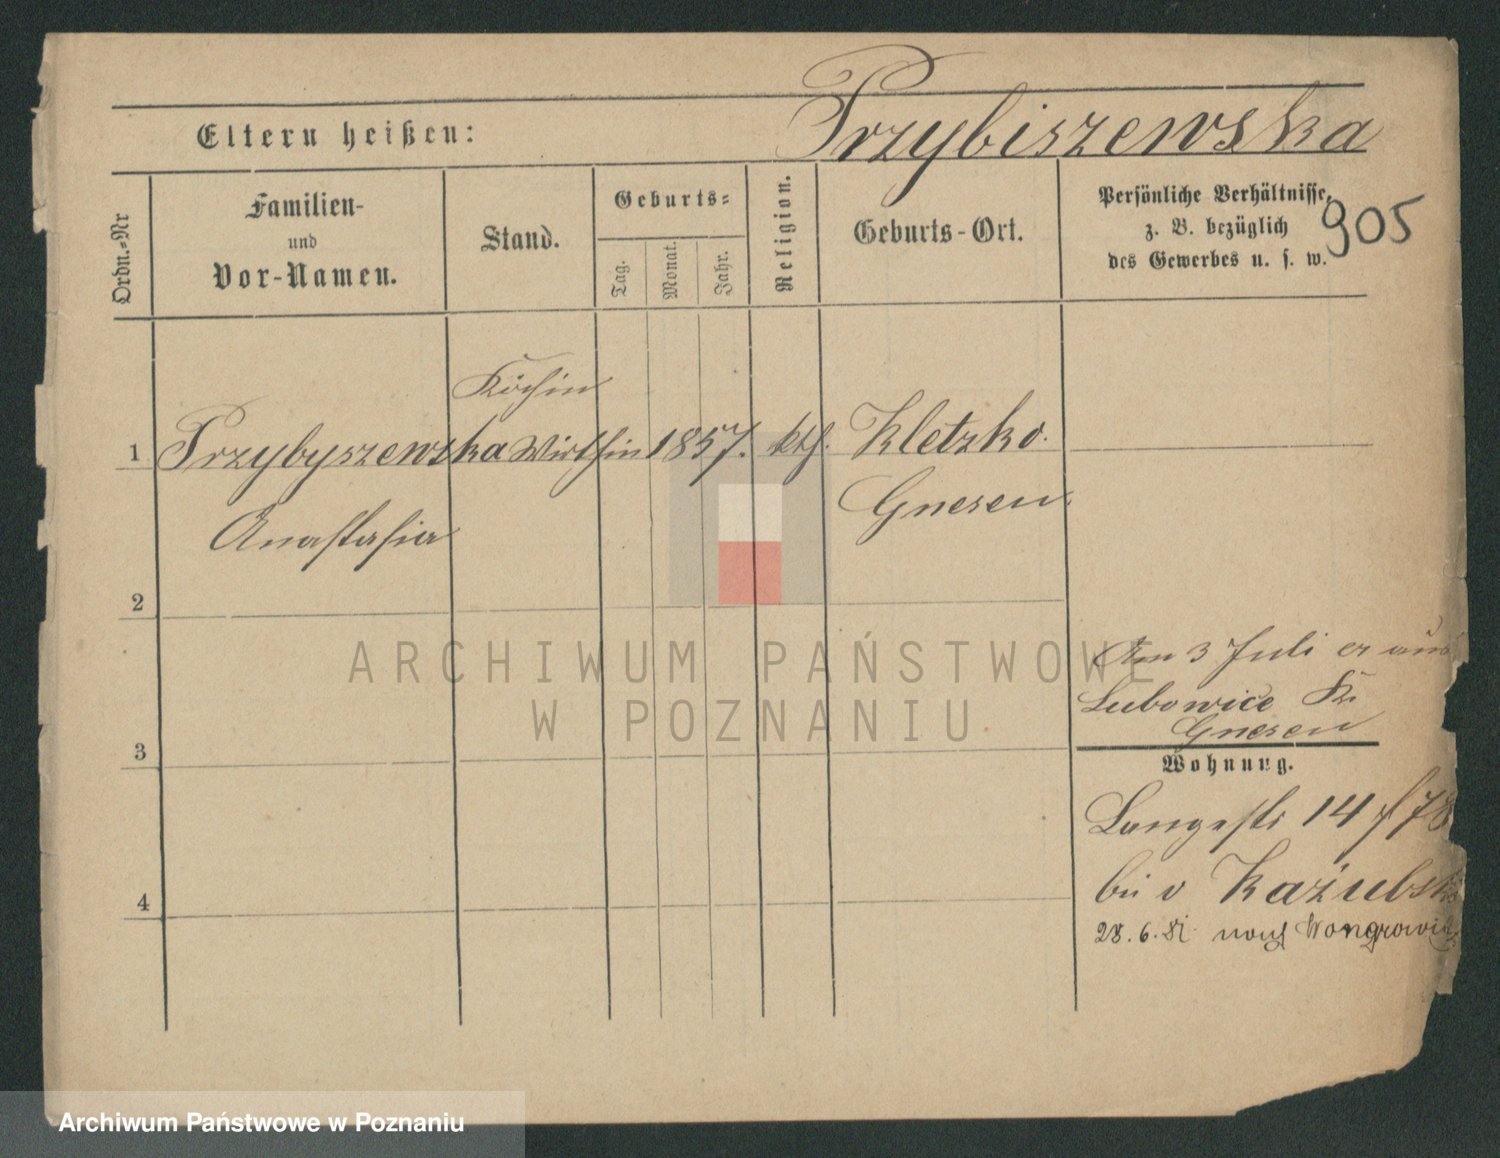 Przybiszewska
Eltern heißen:
Ordn.=Nr
Familien-
und
Vor-Namen.
Stand.
Geburts=
Tag.
Monat.
Jahr.
Religion.
Geburts-Ort.
Persönliche Verhältnisse,
z. B. bezüglich
des Gewerbes u. s. w.
905
Köchin
1 Przybyszewska Wirthin 1857. kth. Kletzko.
Anastasia Gnesen
2
Am 3 Juli er aus
Lubowice Kr
Gnesen
3
Wohnung.
Langestr 14 / 78
bei v Każubski
4
28.6.81 nach Wongrowitz
ARCHIWUM PAŃSTWOWE
W POZNANIU
Archiwum Państwowe w Poznaniu